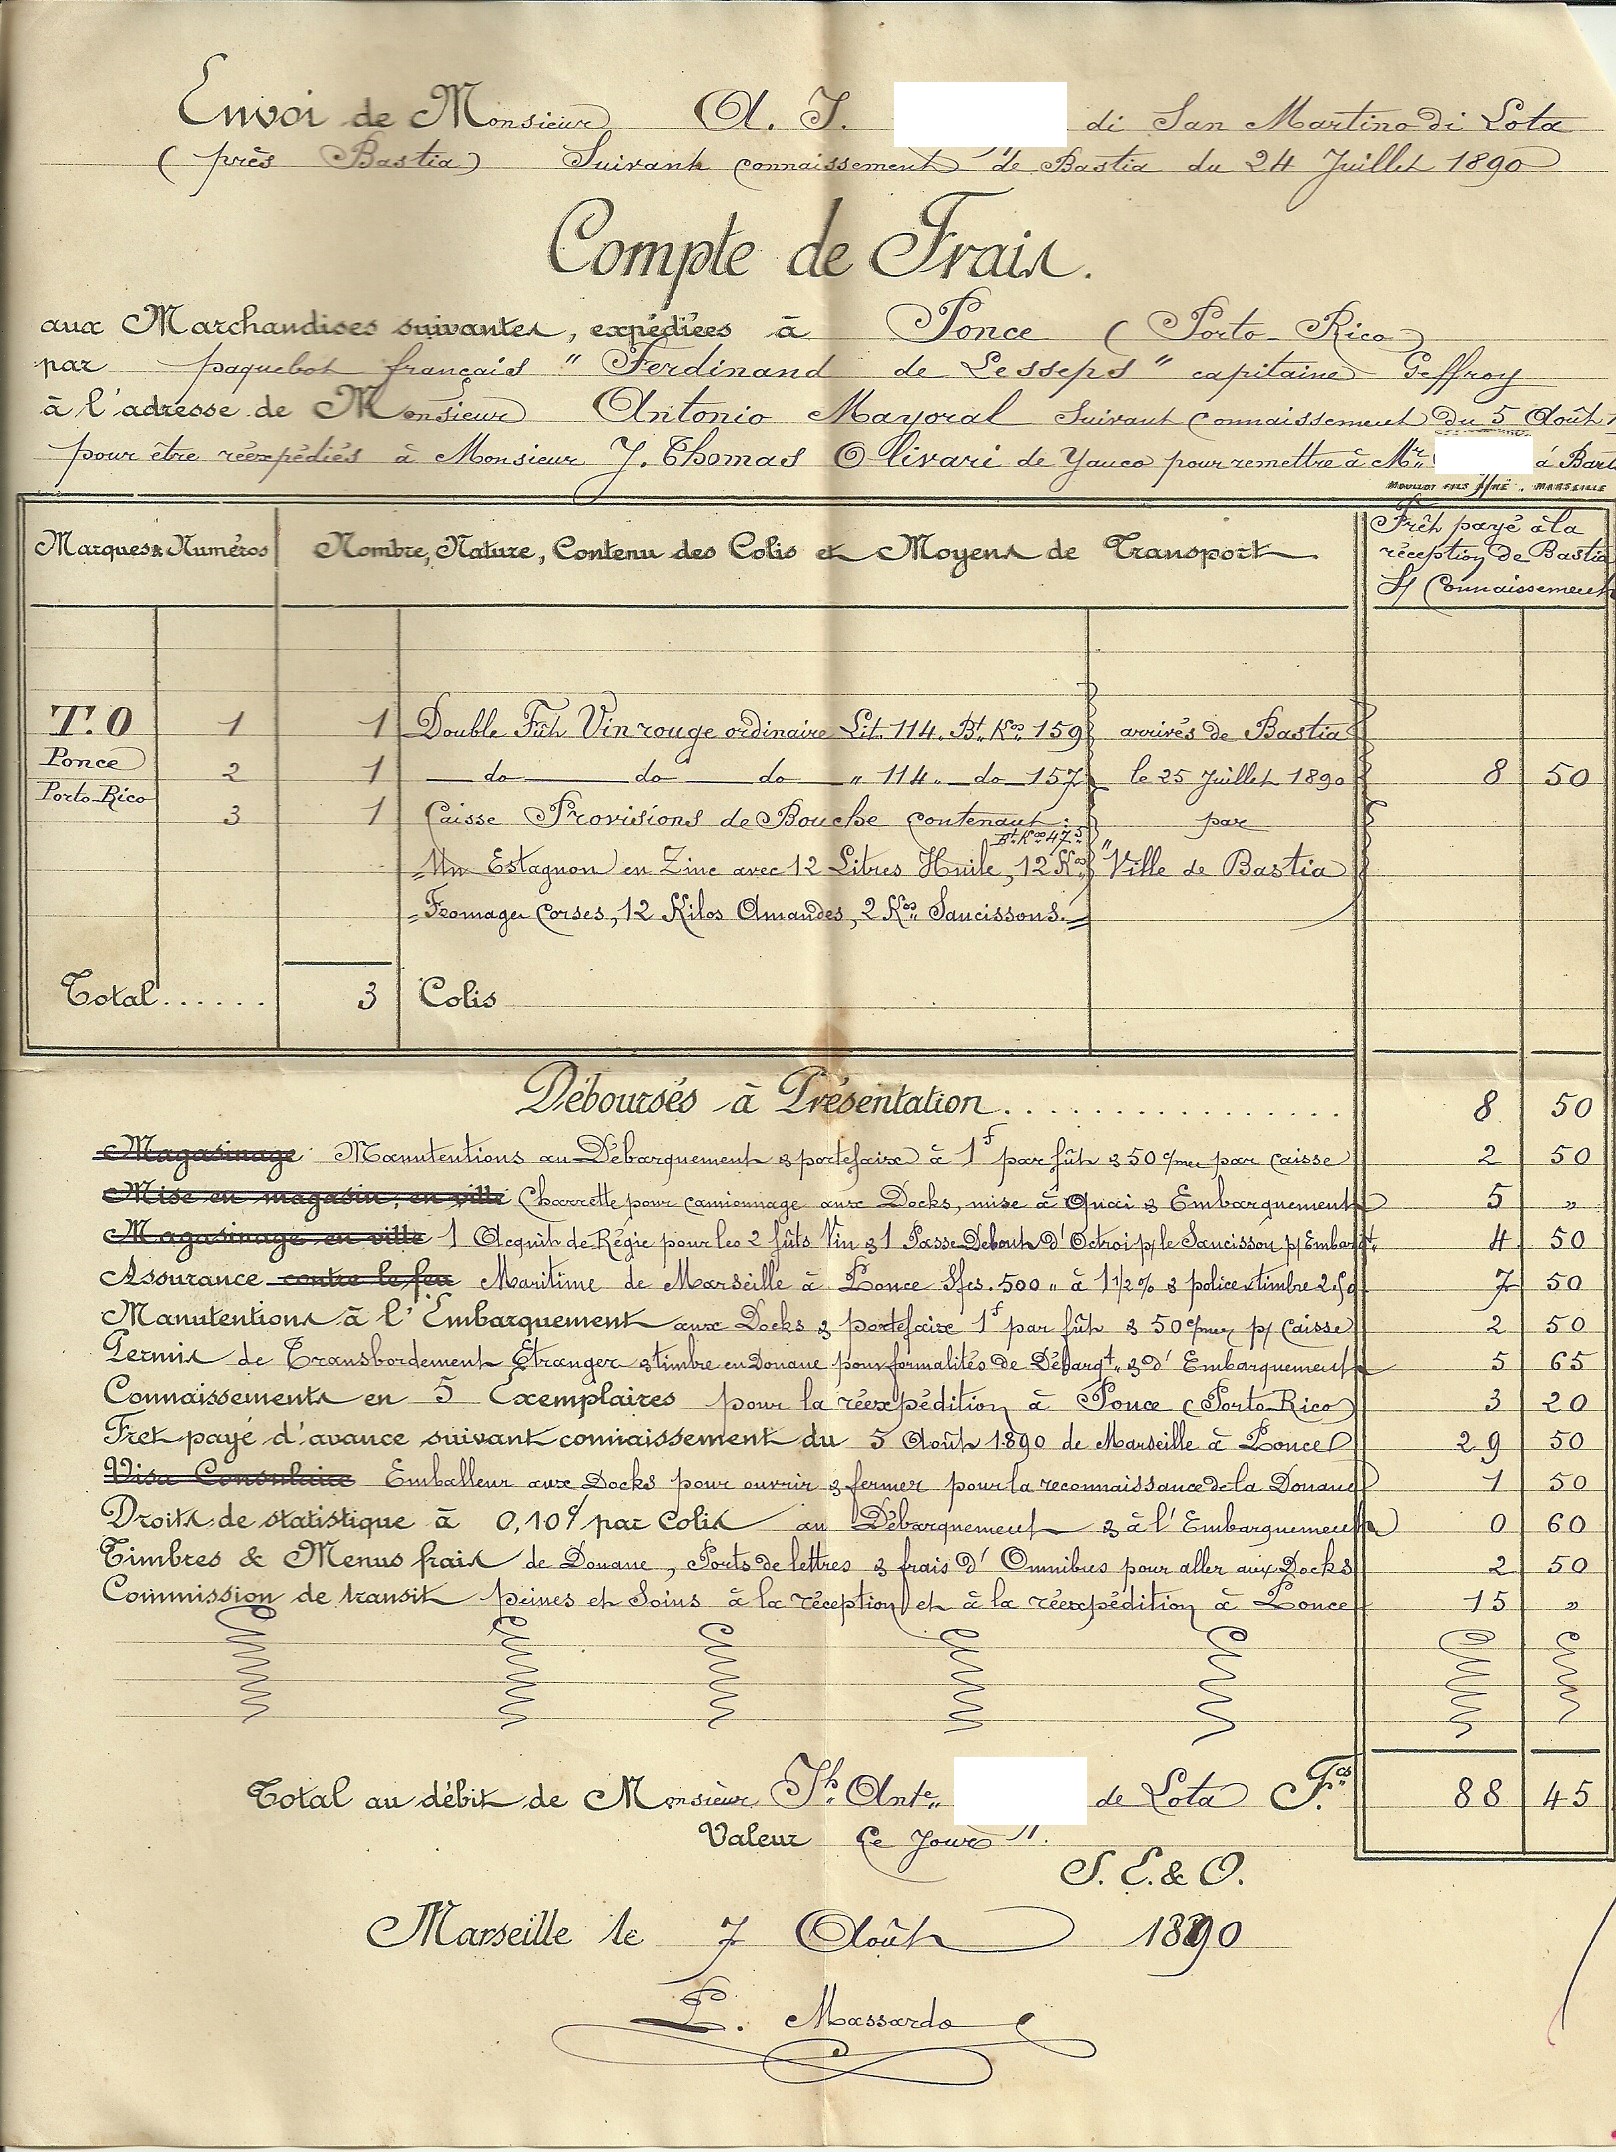 Envoi de Monsieur A. J. di San Martino di Lota
(près Bastia) Suivant connaissement de Bastia du 24 Juillet 1890
Compte de Frais.
aux Marchandises suivantes, expédiées à Ponce (Porto-Rico)
par paquebot français "Ferdinand de Lesseps" capitaine Geffroy
à l'adresse de Monsieur Antonio Mayoral Suivant Connaissement du 5 Août
pour être réexpédiés à Monsieur J. Thomas Olivari de Yauco pour remettre à Mr. à
MOULLOT FILS AÎNÉ. MARSEILLE
Marques & Numéros Nombre, Nature, Contenu des Colis et Moyens de Transport Frêt payé à la réception de Bastia S/ Connaissement
T.O 1 1 Double Fût Vin rouge ordinaire Lit. 114. Bt. Kos. 159 arrivés de Bastia
Ponce 2 1 do do do " 114. do 157 le 25 Juillet 1890 8 50
Porto-Rico 3 1 Caisse Provisions de Bouche contenant: par
Bt. Kos 47,5
Un Estagnon en Zinc avec 12 Litres Huile, 12 Kos "Ville de Bastia
Fromages Corses, 12 Kilos Amandes, 2 Kos Saucissons.
Total...... 3 Colis
Déboursés à Présentation................. 8 50
Magasinage Manutentions au Débarquement & portefaix à 1f par fût & 50 c/mes par caisse 2 50
Mise en magasin, en ville Charrette pour camionnage aux Docks, mise à Quai & Embarquement 5 "
Magasinage en ville 1 Acquit de Régie pour les 2 fûts Vin & 1 Passe Debout d'Octroi p/ le Saucisson p/ Embarqt. 4 50
Assurance contre le feu Maritime de Marseille à Ponce S/fcs. 500 " à 1 1/2 % & police & timbre 7 50
Manutentions à l'Embarquement aux Docks & portefaix 1f par fût & 50 c/mes p/ Caisse 2 50
Permis de Transbordement Etranger & timbre en Douane pour formalités de Débarqt. & d'Embarquement 5 65
Connaissements en 5 Exemplaires pour la réexpédition à Ponce (Porto-Rico) 3 20
Fret payé d'avance suivant connaissement du 5 Août 1890 de Marseille à Ponce 29 50
Visa Consulaire Emballeur aux Docks pour ouvrir & fermer pour la reconnaissance de la Douane 1 50
Droits de statistique à 0,10c par Colis au Débarquement & à l'Embarquement 0 60
Timbres & Menus frais de Douane, Ports de lettres & frais d'Omnibus pour aller aux Docks 2 50
Commission de transit peines et Soins à la réception et à la réexpédition à Ponce 15 "
Total au débit de Monsieur Jh. Ante. de Lota Fcs. 88 45
Valeur Ce Jour
S. E. & O.
Marseille le 7 Août 1890
P. Massardo